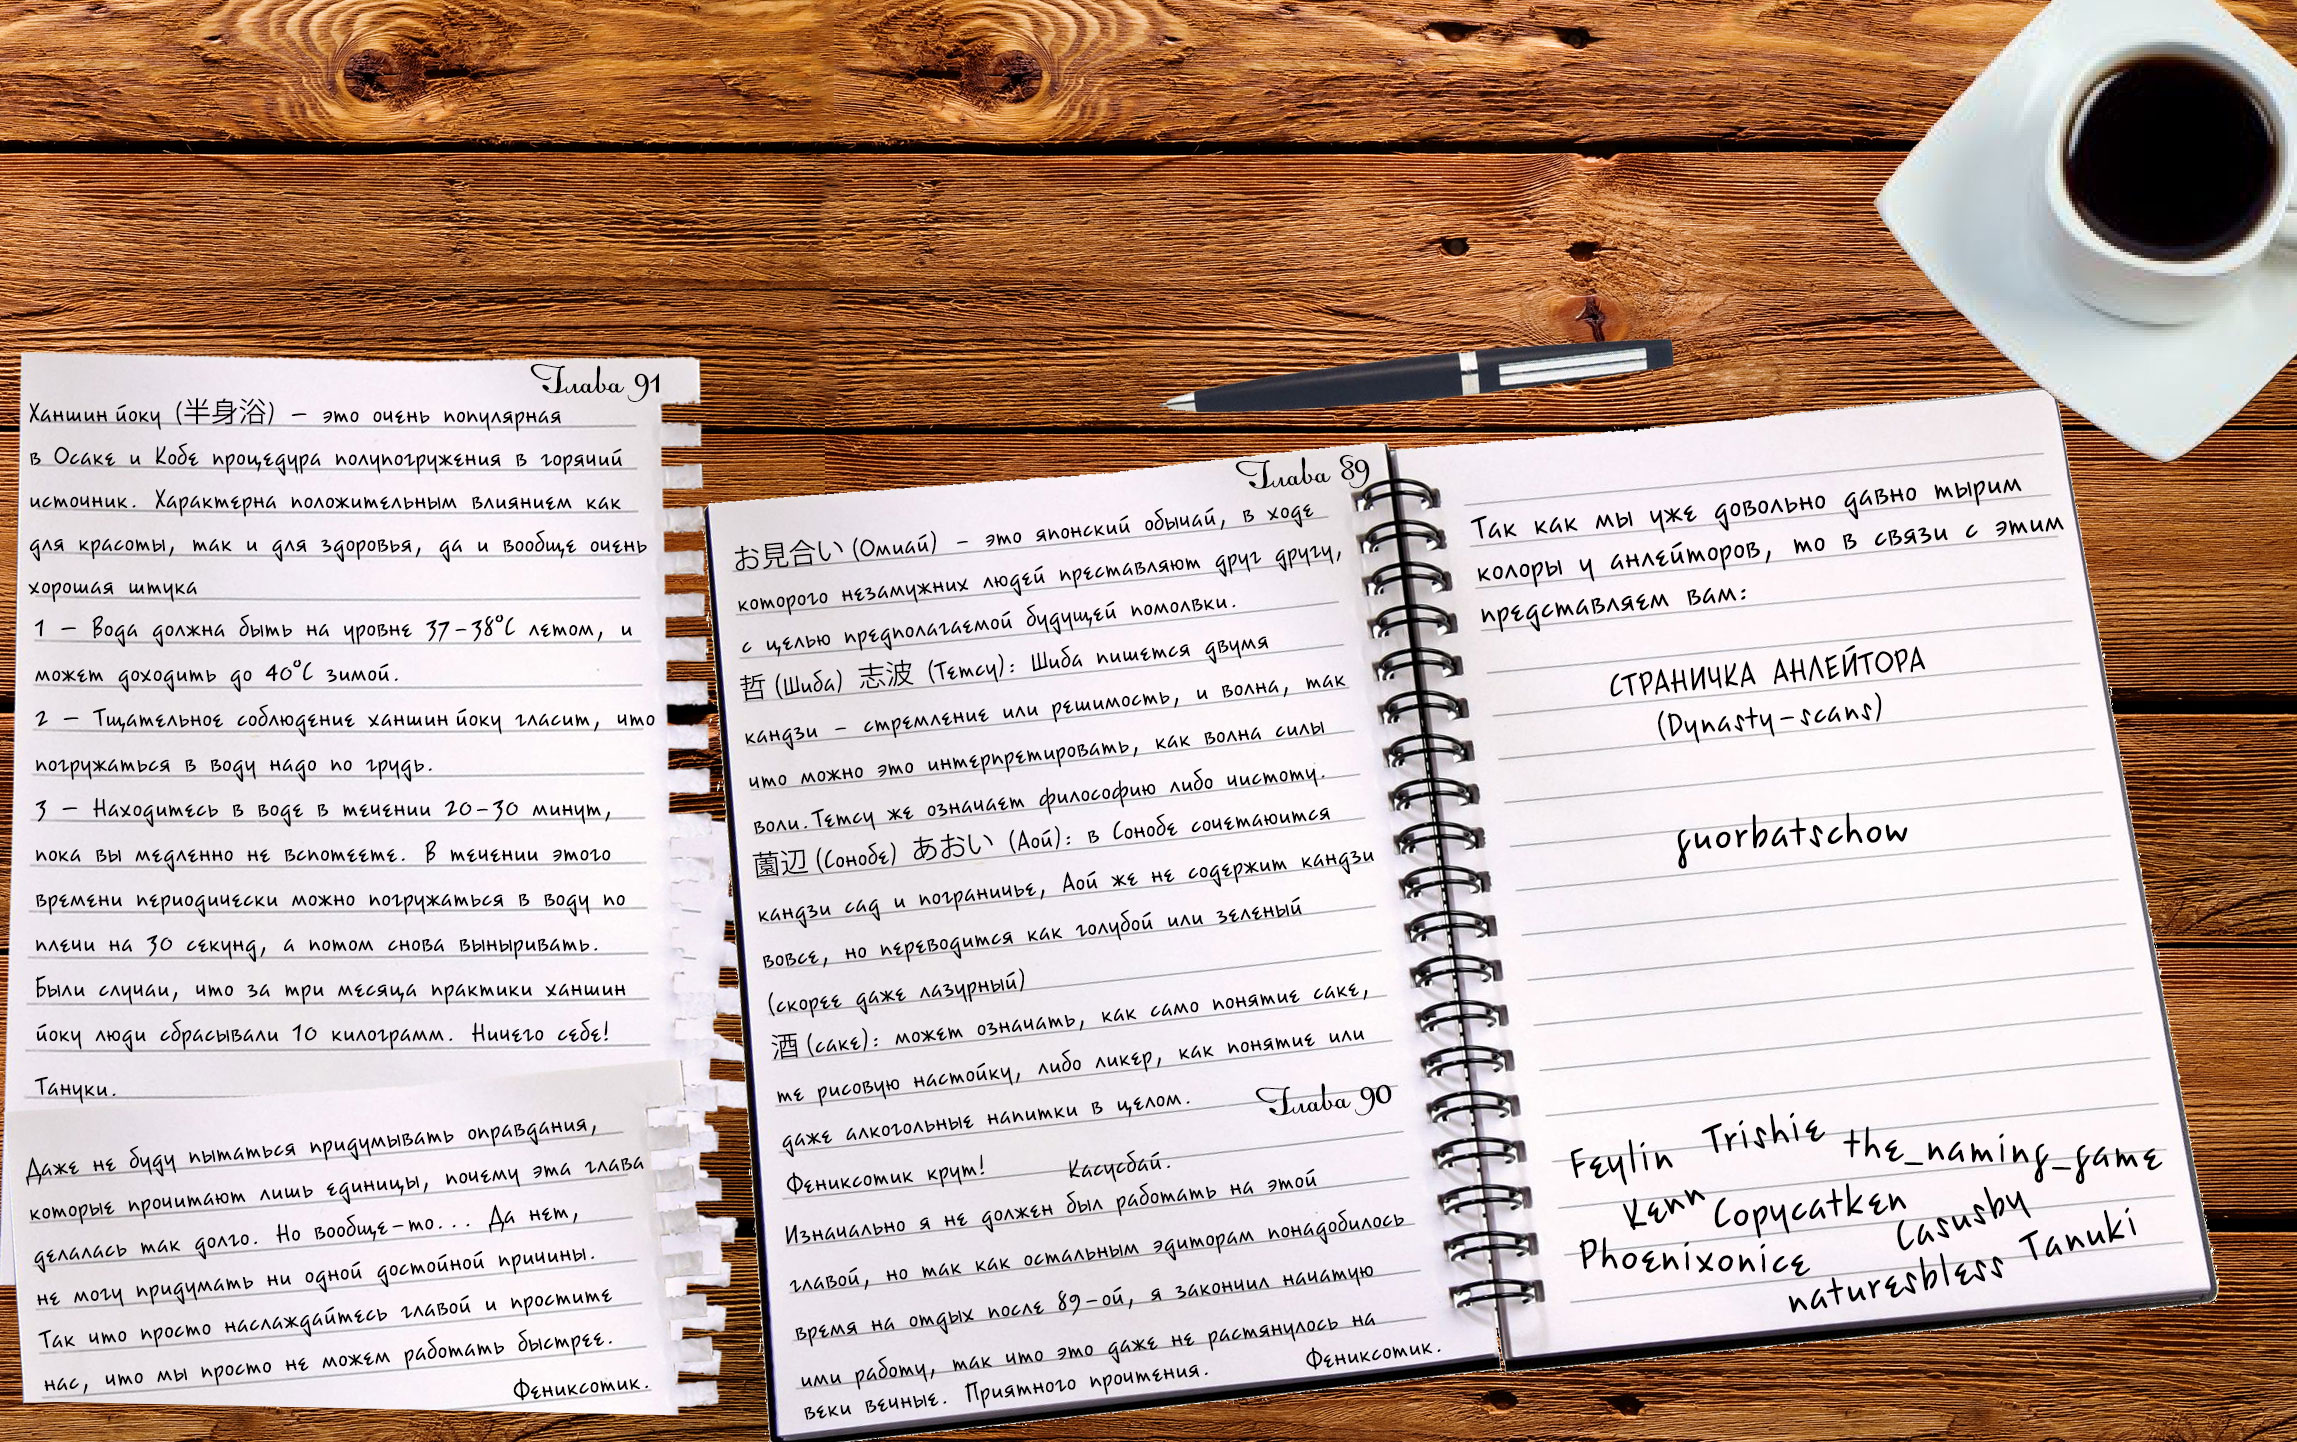 Глава 91
Ханшин йоку (半身浴) – это очень популярная
в Осаке и Кобе процедура полупогружения в горячий
источник. Характерна положительным влиянием как
для красоты, так и для здоровья, да и вообще очень
хорошая штука
1 – Вода должна быть на уровне 37-38°C летом, и
может доходить до 40°C зимой.
2 – Тщательное соблюдение ханшин йоку гласит, что
погружаться в воду надо по грудь.
3 – Находитесь в воде в течении 20-30 минут,
пока вы медленно не вспотеете. В течении этого
времени периодически можно погружаться в воду по
плечи на 30 секунд, а потом снова выныривать.
Были случаи, что за три месяца практики ханшин
йоку люди сбрасывали 10 килограмм. Ничего себе!
Тануки.
Даже не буду пытаться придумывать оправдания,
которые прочитают лишь единицы, почему эта глава
делалась так долго. Но вообще-то... Да нет,
не могу придумать ни одной достойной причины.
Так что просто наслаждайтесь главой и простите
нас, что мы просто не можем работать быстрее.
Фениксотик.
Глава 89
お見合い (Омиай) – это японский обычай, в ходе
которого незамужних людей преставляют друг другу,
с целью предполагаемой будущей помолвки.
哲 (Шиба) 志波 (Тетсу): Шиба пишется двумя
кандзи – стремление или решимость, и волна, так
что можно это интерпретировать, как волна силы
воли. Тетсу же означает философию либо чистоту.
薗辺 (Сонобе) あおい (Аой): в Сонобе сочетаются
кандзи сад и пограничье, Аой же не содержит кандзи
вовсе, но переводится как голубой или зеленый
(скорее даже лазурный)
酒 (саке): может означать, как само понятие саке,
те рисовую настойку, либо ликер, как понятие или
даже алкогольные напитки в целом.
Глава 90
Фениксотик крут! Касусбай.
Изначально я не должен был работать на этой
главой, но так как остальным эдиторам понадобилось
время на отдых после 89-ой, я закончил начатую
ими работу, так что это даже не растянулось на
веки вечные. Приятного прочтения. Фениксотик.
Так как мы уже довольно давно тырим
колоры у анлейторов, то в связи с этим
представляем вам:
СТРАНИЧКА АНЛЕЙТОРА
(Dynasty-scans)
guorbatschow
Feylin Trishie the_naming_game
Kenn Copycatken
Phoenixonice Casusby
naturesbless Tanuki